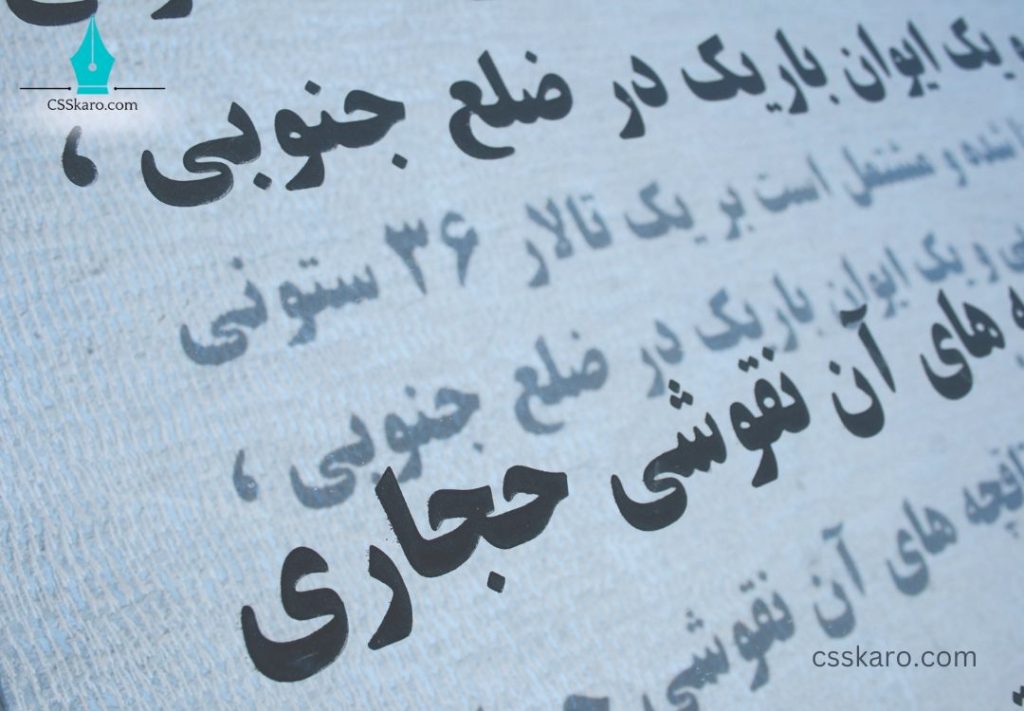 CSSkaro.com
و یک ایوان باریک در ضلع جنوبی ،
شده و مشتمل است بر یک تالار ۳۶ ستونی
و یک ایوان باریک در ضلع جنوبی ،
های آن نقوشی حجاری
های آن نقوشی
csskaro.com